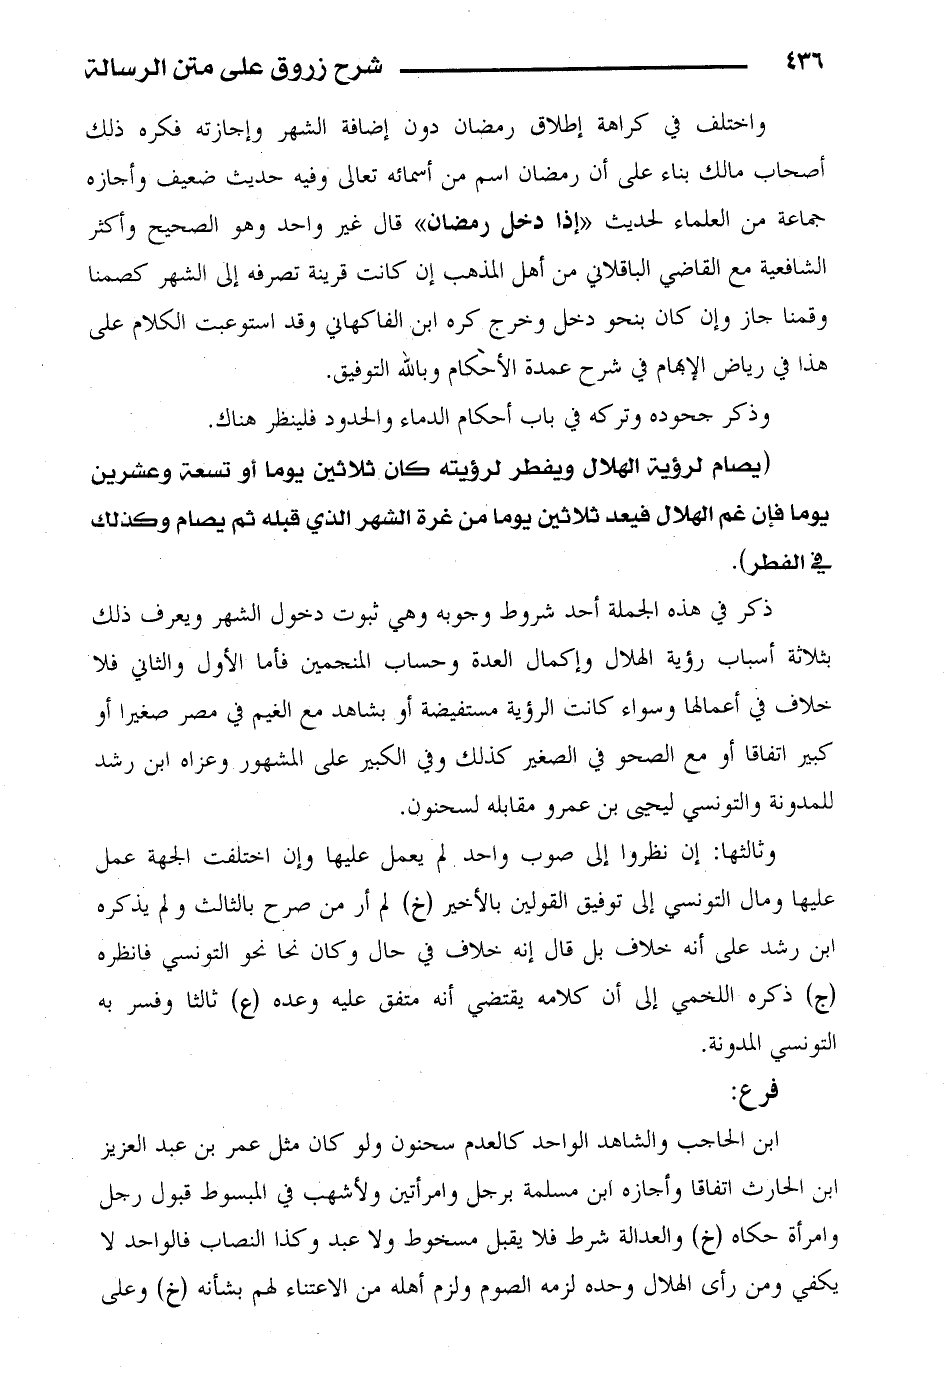 ٤٣٦ شرح زروق على متن الرسالة
واختلف في كراهة إطلاق رمضان دون إضافة الشهر وإجازته فكره ذلك
أصحاب مالك بناء على أن رمضان اسم من أسمائه تعالى وفيه حديث ضعيف وأجازه
جماعة من العلماء لحديث «إذا دخل رمضان» قال غير واحد وهو الصحيح وأكثر
الشافعية مع القاضي الباقلاني من أهل المذهب إن كانت قرينة تصرفه إلى الشهر كصمنا
وقمنا جاز وإن كان بنحو دخل وخرج كره ابن الفاكهاني وقد استوعبت الكلام على
هذا في رياض الإبهام في شرح عمدة الأحكام وبالله التوفيق.
وذكر جحوده وتركه في باب أحكام الدماء والحدود فلينظر هناك.
(يصام لرؤية الهلال ويفطر لرؤيته كان ثلاثين يوما أو تسعة وعشرين
يوما فإن غم الهلال فيعد ثلاثين يوما من غرة الشهر الذي قبله ثم يصام وكذلك
في الفطر).
ذكر في هذه الجملة أحد شروط وجوبه وهي ثبوت دخول الشهر ويعرف ذلك
بثلاثة أسباب رؤية الهلال وإكمال العدة وحساب المنجمين فأما الأول والثاني فلا
خلاف في أعمالها وسواء كانت الرؤية مستفيضة أو بشاهد مع الغيم في مصر صغيرا أو
كبير اتفاقا أو مع الصحو في الصغير كذلك وفي الكبير على المشهور وعزاه ابن رشد
للمدونة والتونسي ليحيى بن عمرو مقابله لسحنون.
وثالثها: إن نظروا إلى صوب واحد لم يعمل عليها وإن اختلفت الجهة عمل
عليها ومال التونسي إلى توفيق القولين بالأخير (خ) لم أر من صرح بالثالث ولم يذكره
ابن رشد على أنه خلاف بل قال إنه خلاف في حال وكان نحا نحو التونسي فانظره
(ج) ذكره اللخمي إلى أن كلامه يقتضي أنه متفق عليه وعده (ع) ثالثا وفسر به
التونسي المدونة.
فرع:
ابن الحاجب والشاهد الواحد كالعدم سحنون ولو كان مثل عمر بن عبد العزيز
ابن الحارث اتفاقا وأجازه ابن مسلمة برجل وامرأتين ولأشهب في المبسوط قبول رجل
وامرأة حكاه (خ) والعدالة شرط فلا يقبل مسخوط ولا عبد وكذا النصاب فالواحد لا
يكفي ومن رأى الهلال وحده لزمه الصوم ولزم أهله من الاعتناء لهم بشأنه (خ) وعلى